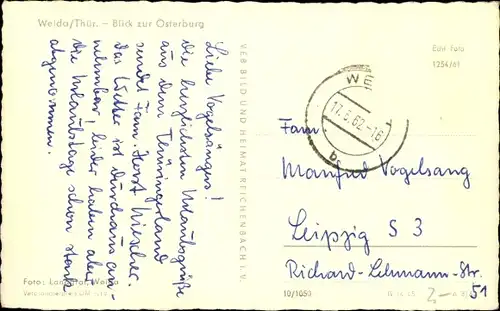 Weida/Thür. – Blick zur Osterburg
Liebe Vogelsänger!
die herzlichsten Urlaubsgrüße
aus dem Thüringerland
sendet Fam. Horst
das Wetter ist durchaus an-
nehmbar, leider haben aber
die Urlaubstage schon stark
abgenommen.
Foto:
VEB BILD UND HEIMAT REICHENBACH I. V.
Echt Foto
1254/61
WE
17.6.62-16
b
Fam.
Manfred Vogelsang
Leipzig S 3
Richard-Lehmann-Str.
51
10/1053
2,-